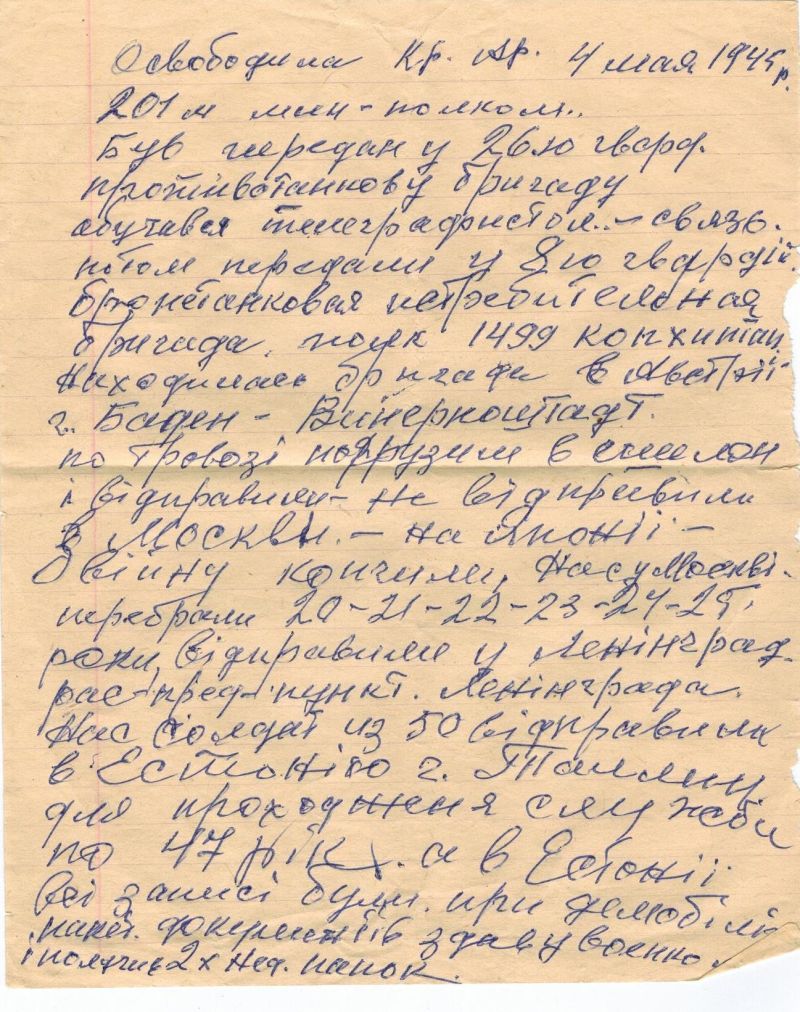 Освободила Кр. Ар. 4 мая 1945 р.
201м мин-полком..
Був передан у 26ю гвард.
протівотанкову бригаду
обучався телеграфистом.. – связь.
потом передали у 8ю гвардій.
бронетанковая истребительная
бригада. полк 1499
находилась бригада в Австрії
г. Баден – Винерноштадт.
по тровозі погрузили в ешелон
і відправили – не відправили
з Москви. – на Японії –
Війну кончили, Нас у Москві.
перебрали 20-21-22-23-24-25.
роки, відправили у Ленінград.
рас-пред-пункт. Ленінграда.
Нас солдат из 50 відправили
в Естонію г. Таллин
для проходження служби
по 47 рік. а в Естонії
всі записі були. при демобілі
документів здав у военко.
і получив 2х нед. папок.